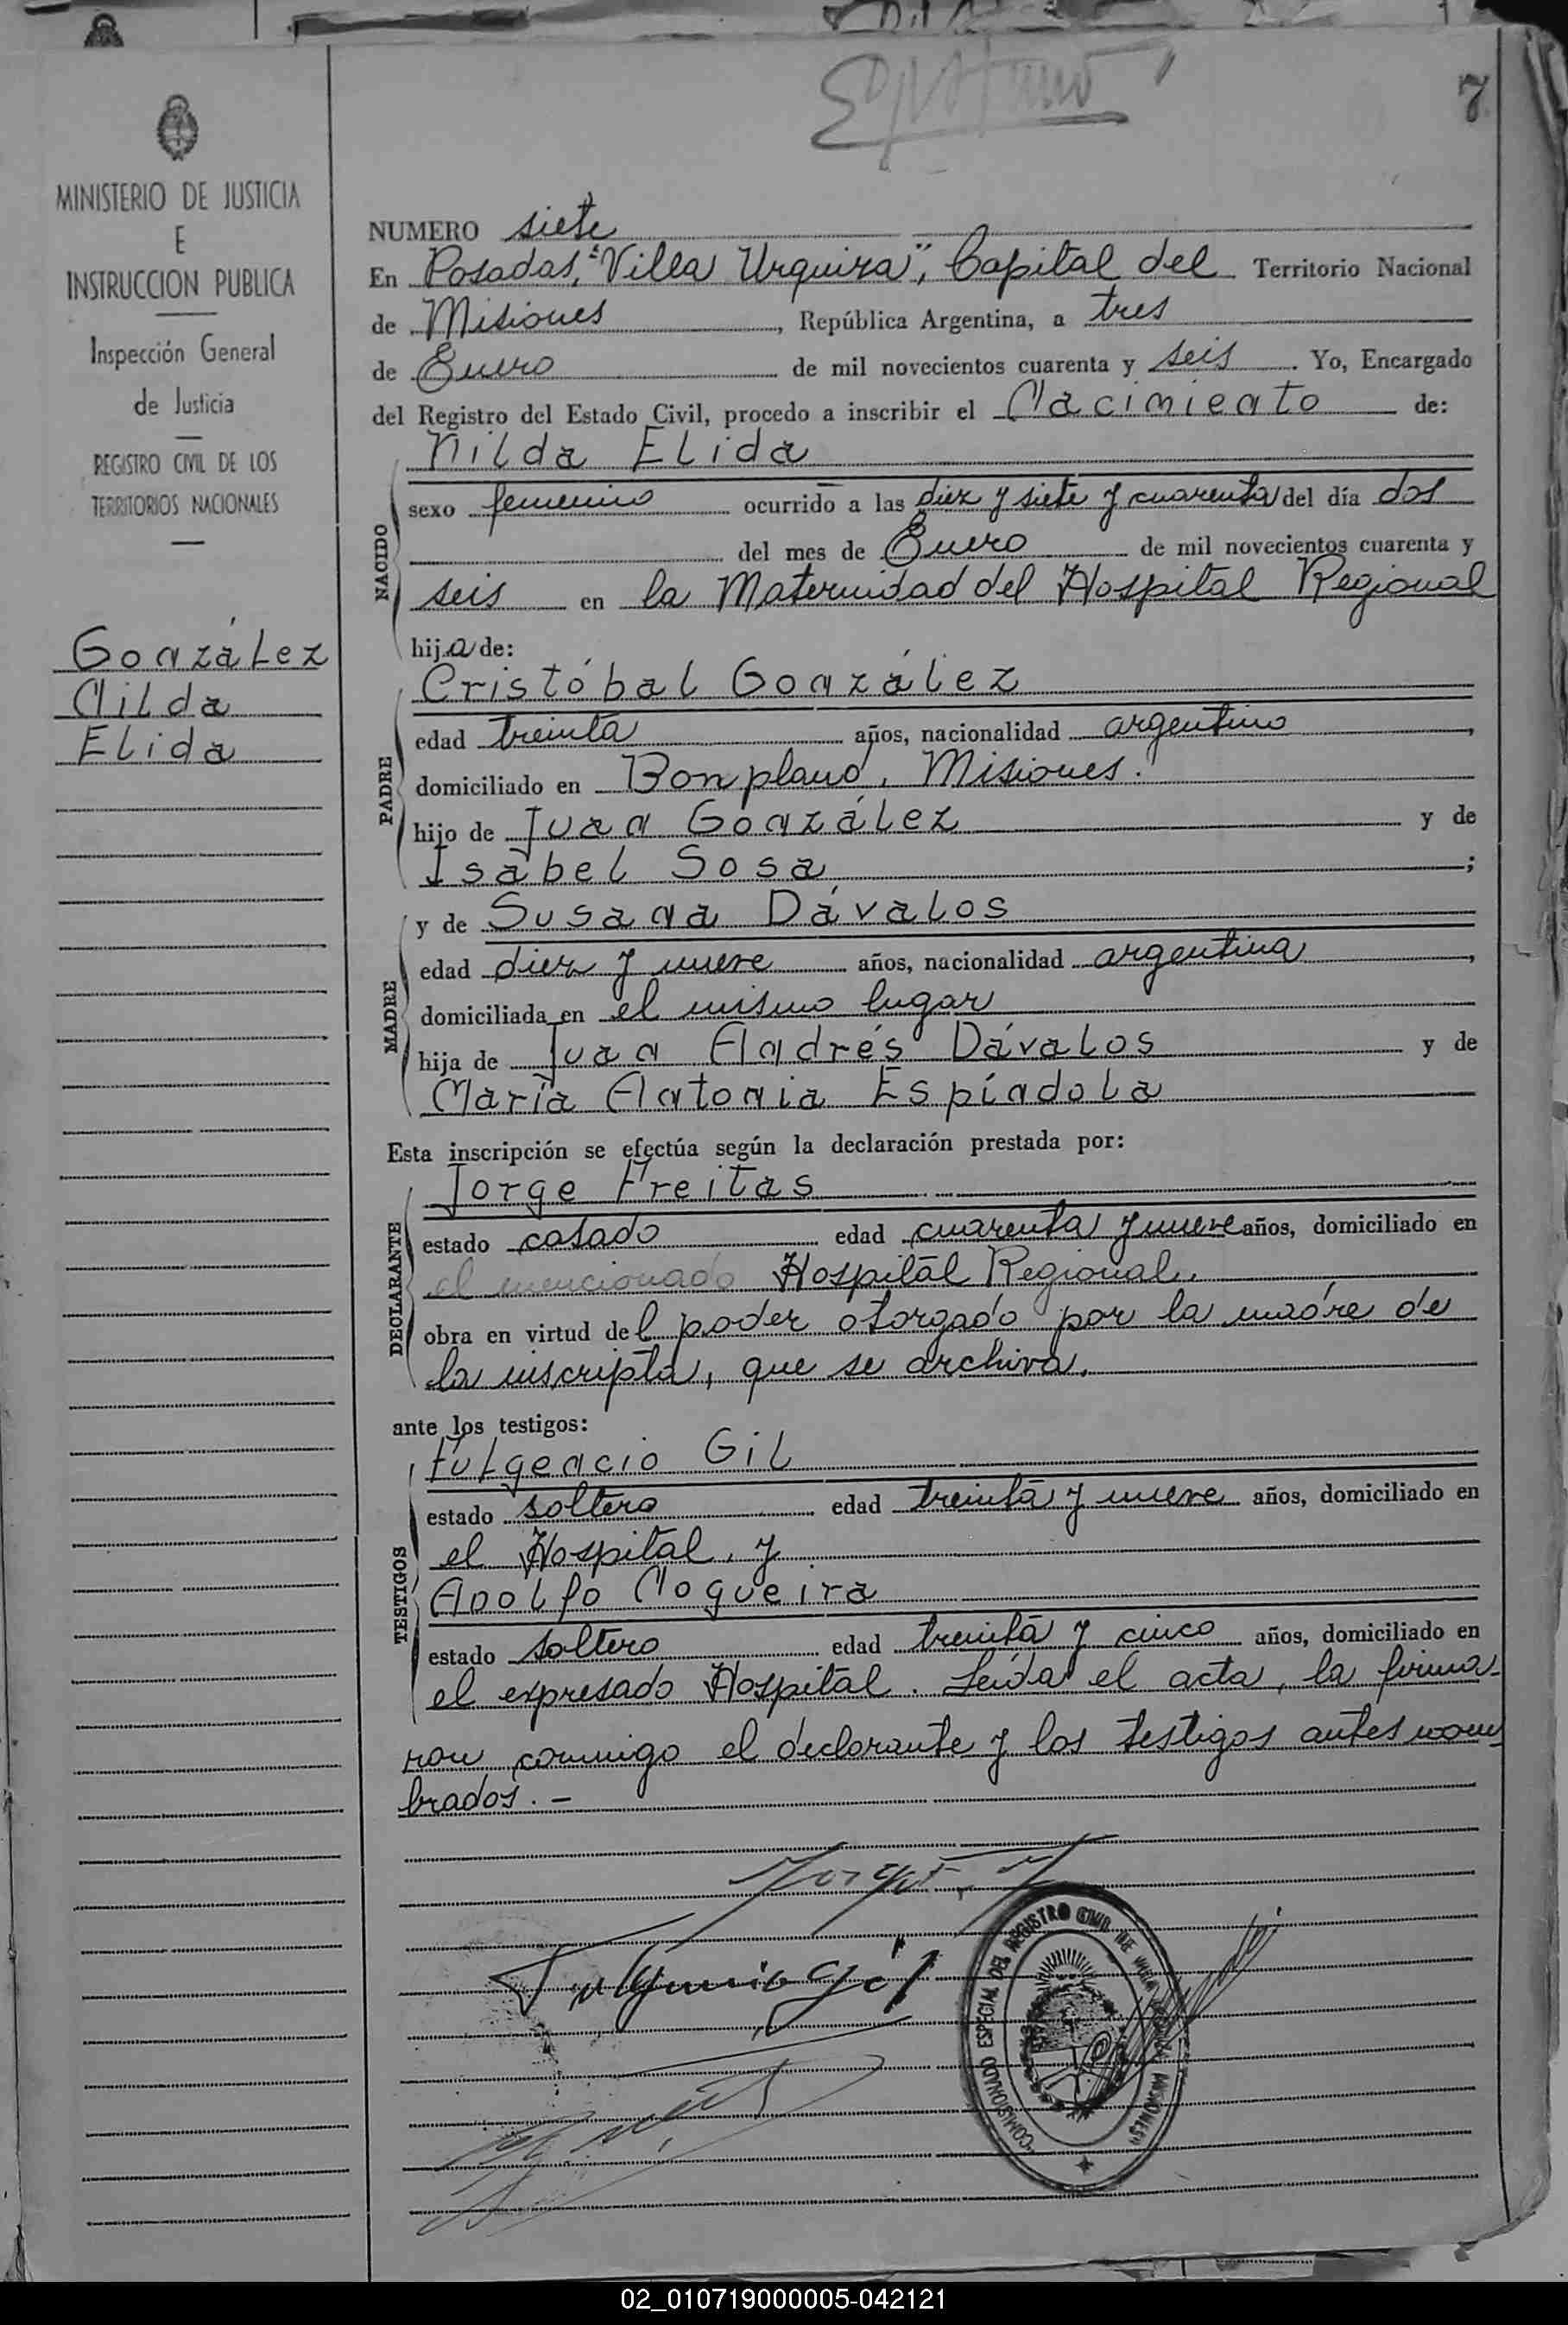 7
MINISTERIO DE JUSTICIA
E
INSTRUCCION PUBLICA
Inspección General
de Justicia
REGISTRO CIVIL DE LOS
TERRITORIOS NACIONALES
González
Nilda
Elida
NUMERO siete
En Posadas, "Villa Urquiza", Capital del Territorio Nacional
de Misiones, República Argentina, a tres
de Enero de mil novecientos cuarenta y seis. Yo, Encargado
del Registro del Estado Civil, procedo a inscribir el Nacimiento de:
Nilda Elida
NACIDO
sexo femenino ocurrido a las diez y siete y cuarenta del día dos
del mes de Enero de mil novecientos cuarenta y
seis en la Maternidad del Hospital Regional
hija de:
Cristóbal González
PADRE
edad treinta años, nacionalidad argentino,
domiciliado en Bonpland, Misiones.
hijo de Juan González y de
Isabel Sosa;
MADRE
y de Susana Dávalos
edad diez y nueve años, nacionalidad argentina,
domiciliada en el mismo lugar
hija de Juan Andrés Dávalos y de
María Antonia Espíndola
Esta inscripción se efectúa según la declaración prestada por:
Jorge Freitas
DECLARANTE
estado casado edad cuarenta y nueve años, domiciliado en
el mencionado Hospital Regional.
obra en virtud del poder otorgado por la madre de
la inscripta, que se archiva.
ante los testigos:
Fulgencio Gil
TESTIGOS
estado soltero edad treinta y nueve años, domiciliado en
el Hospital, y
Adolfo Nogueira
estado soltero edad treinta y cinco años, domiciliado en
el expresado Hospital. Leída el acta, la firma-
ron conmigo el declarante y los testigos antes nom
brados.-
Fulgencio Gil
COMISIONADO ESPECIAL DEL REGISTRO CIVIL DE VILLA URQUIZA MISIONES
02_010719000005-042121